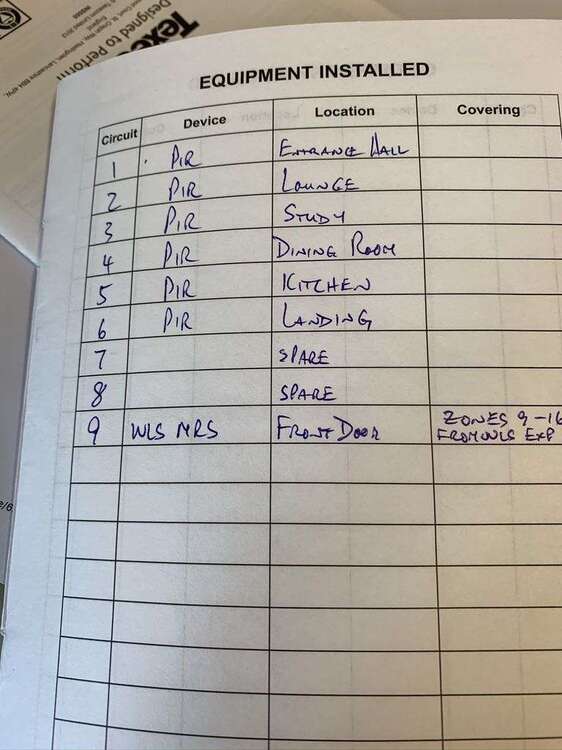 Texe
Designed to perform
England
EQUIPMENT INSTALLED
Circuit Device Location Covering
1 PIR ENTRANCE HALL
2 PIR LOUNGE
3 PIR STUDY
4 PIR DINING ROOM
5 PIR KITCHEN
6 PIR LANDING
7 SPARE
8 SPARE
9 WLS MRS FRONT DOOR ZONES 9-16
FROM WLS EXP